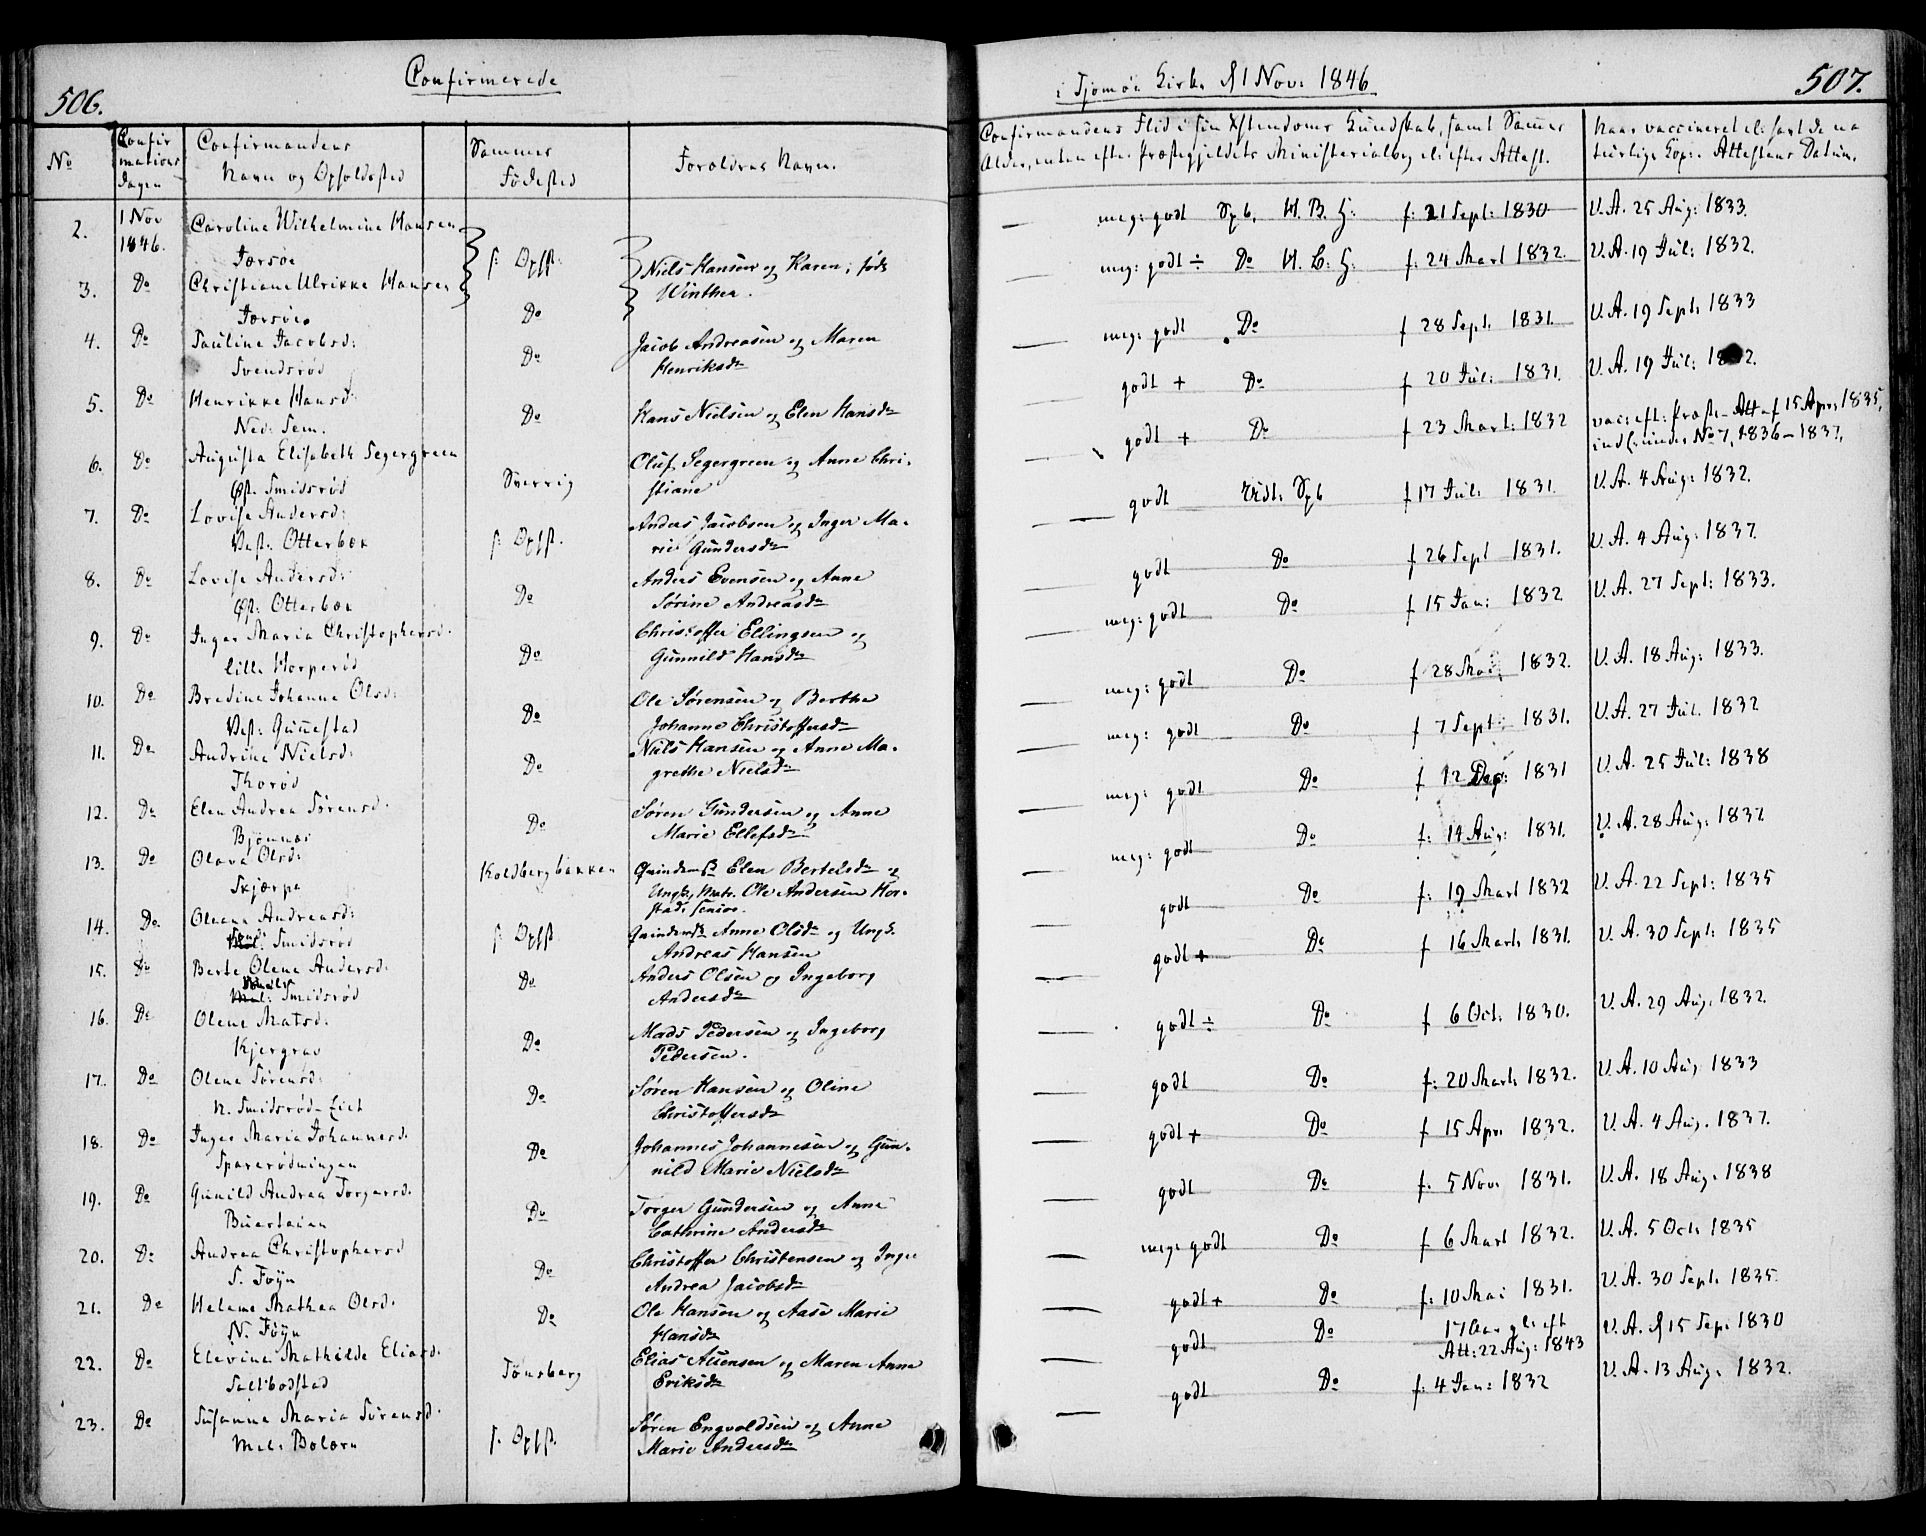 506.
Confirmerede
No
Confir
mations
Dagen
Confirmandens
Navn og Opholdssted
Sammes
Fødested
Foreldres Navn.
2. 1 Nov 1846. Caroline Wilhelmine Hansen
Færøe
s: Opst.
Niels Hansen og Karen, føds
Winther.
3. Do Christiane Ulrikke Hansen
Do
4. Do Pauline Jacobsd:
Svendsrød
Do
Jacob Andreasen og Maren
Henriksdr
5. Do Henrikke Hansd:
Ned: Sem.
Do
Hans Nielsen og Elen Hansdr
6. Do Augusta Elisabeth Segergreen
Øst. Smidsrød
Sverrig
Oluf Segergreen og Anne Chri-
stiane
7. Do Lovise Andersd:
Vest: Otterbek
s: Opst.
Anders Jacobsen og Inger Ma-
rie Gundersdr
8. Do Lovise Andersd:
Øst: Otterbek
Do
Anders Evensen og Anne
Sørine Andreasdr
9. Do Inger Maria Christophersd.
Lille Horperød
Do
Christoffer Ellingsen og
Gunnild Hansdr
10. Do Bredine Johanne Olsd:
Vest: Gunnestad
Do
Ole Sørensen og Berthe
Johanne Christoffersdr
11. Do Andrine Nielsd:
Thorød
Do
Niels Hansen og Anne Ma-
grethe Nielsdr
12. Do Elen Andrea Sørensd.
Bjønnes
Do
Søren Gundersen og Anne
Marie Ellefsdr
13. Do Olava Olsd:
Skjærpe
Koldbergbakken
Qvindemsk Elen Bertelsdr og
Ungk. Matr. Ole Andersen Hor-
stad, senior.
14. Do Oleane Andreasd:
Smidsrød
s: Opst
Qvindemsk Anne Olsdr og Ungk.
Andreas Hansen
15. Do Berte Olene Andersd:
Smidsrød
Do
Anders Olsen og Ingeborg
Andersdr
16. Do Olene Matsd:
Kjergrav
Do
Mads Pedersen og Ingeborg
Pedersen.
17. Do Olene Sørensd:
N. Smidsrød-Eiet
Do
Søren Hansen og Oline
Christoffersdr
18. Do Inger Maria Johannesd.
Sparerødningen
Do
Johannes Johannesen og Gun-
nild Marie Nielsdr
19. Do Gunild Andrea Torgersd.
Do
Torger Gundersen og Anne
Cathrine Andersdr
20. Do Andrea Christophersd
S. Føyn
Do
Christoffer Christensen og Inger
Andrea Jacobsdr
21. Do Helene Mathea Olsd.
N. Føyn
Do
Ole Hansen og Aase Marie
Hansdr
22. Do Elevine Mathilde Eliasd.
Saltbodstad
Tønsberg
Elias Aslensen og Maren Anne
Eriksdr
23. Do Susanne Maria Sørensd.
Mel: Bolærn
s: Opst.
Søren Engvoldsen og Anne
Marie Andersdr
i Tjømøe Kirke d 1 Nov: 1846
507.
Confirmandens Flid i sin Xstendoms Kundskab, samt Sammes
Alder, enten efter Præstegjeldets Ministerialbog el: efter Attest.
Naar vaccineret el: havt de na
turlige Kop: Attestens Datum.
meg: godt Spb. M. B. H: f: 21 Sept: 1830 V. A. 25 Aug: 1833.
meg: godt ÷ Do M. B. H: f: 24 Mart 1832. V. A. 19 Jul: 1832.
meg: godt Do f 28 Sept 1831. V. A. 19 Sept: 1833
godt + Do f 20 Jul: 1831. V. A. 19 Jul:
godt + Do f 23 Mart: 1832 vac: eft: Præste-Att af 15 Apr: 1835,
indf: under No 7, 1836-1837.
godt Udt: Spb f 17 Jul: 1831. V. A. 4 Aug: 1832.
godt Do f 26 Sept 1831. V. A. 4 Aug: 1837.
meg: godt Do f 15 Jan: 1832. V. A. 27 Sept: 1833.
meg: godt Do f 28 Mai 1832. V. A. 18 Aug: 1833.
meg: godt Do f 7 Sept: 1831. V. A. 27 Jul. 1832
meg: godt Do f 12 Dec: 1831 V. A. 25 Jul: 1838
meg: godt Do f: 14 Aug: 1831. V. A. 28 Aug: 1832
godt Do f: 19 Mart 1832 V. A. 22 Sept: 1835
godt + Do f 16 Mart 1831. V. A. 30 Sept: 1835
godt ÷ Do f 6 Oct: 1830. V. A. 29 Aug. 1832.
godt Do f: 20 Mart 1832. V. A. 10 Aug 1833
godt + Do f 15 Apr. 1832. V. A. 4 Aug. 1837.
godt Do f: 5 Nov: 1831. V. A. 18 Aug. 1838
meg: godt Do f 6 Mart 1832. V. A. 5 Oct: 1835
godt + Do f: 10 Mai 1831. V. A. 30 Sept. 1835.
godt Do 17 Aar gl: eft
Att: 22 Aug: 1843 V. A. d 15 Sep. 1830
godt Do f: 4 Jan: 1832 V. A. 13 Aug. 1832.